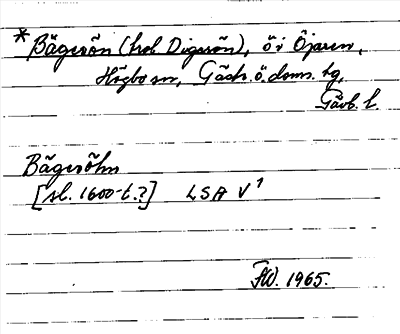 *Bägerön (trol. Digerön), ö i Öjaren,
Högbo sn, Gästr. ö. doms. tg,
Gävb. l.
Bägeröhn
[sl. 1600-t.?] LSA V¹
FW. 1965.